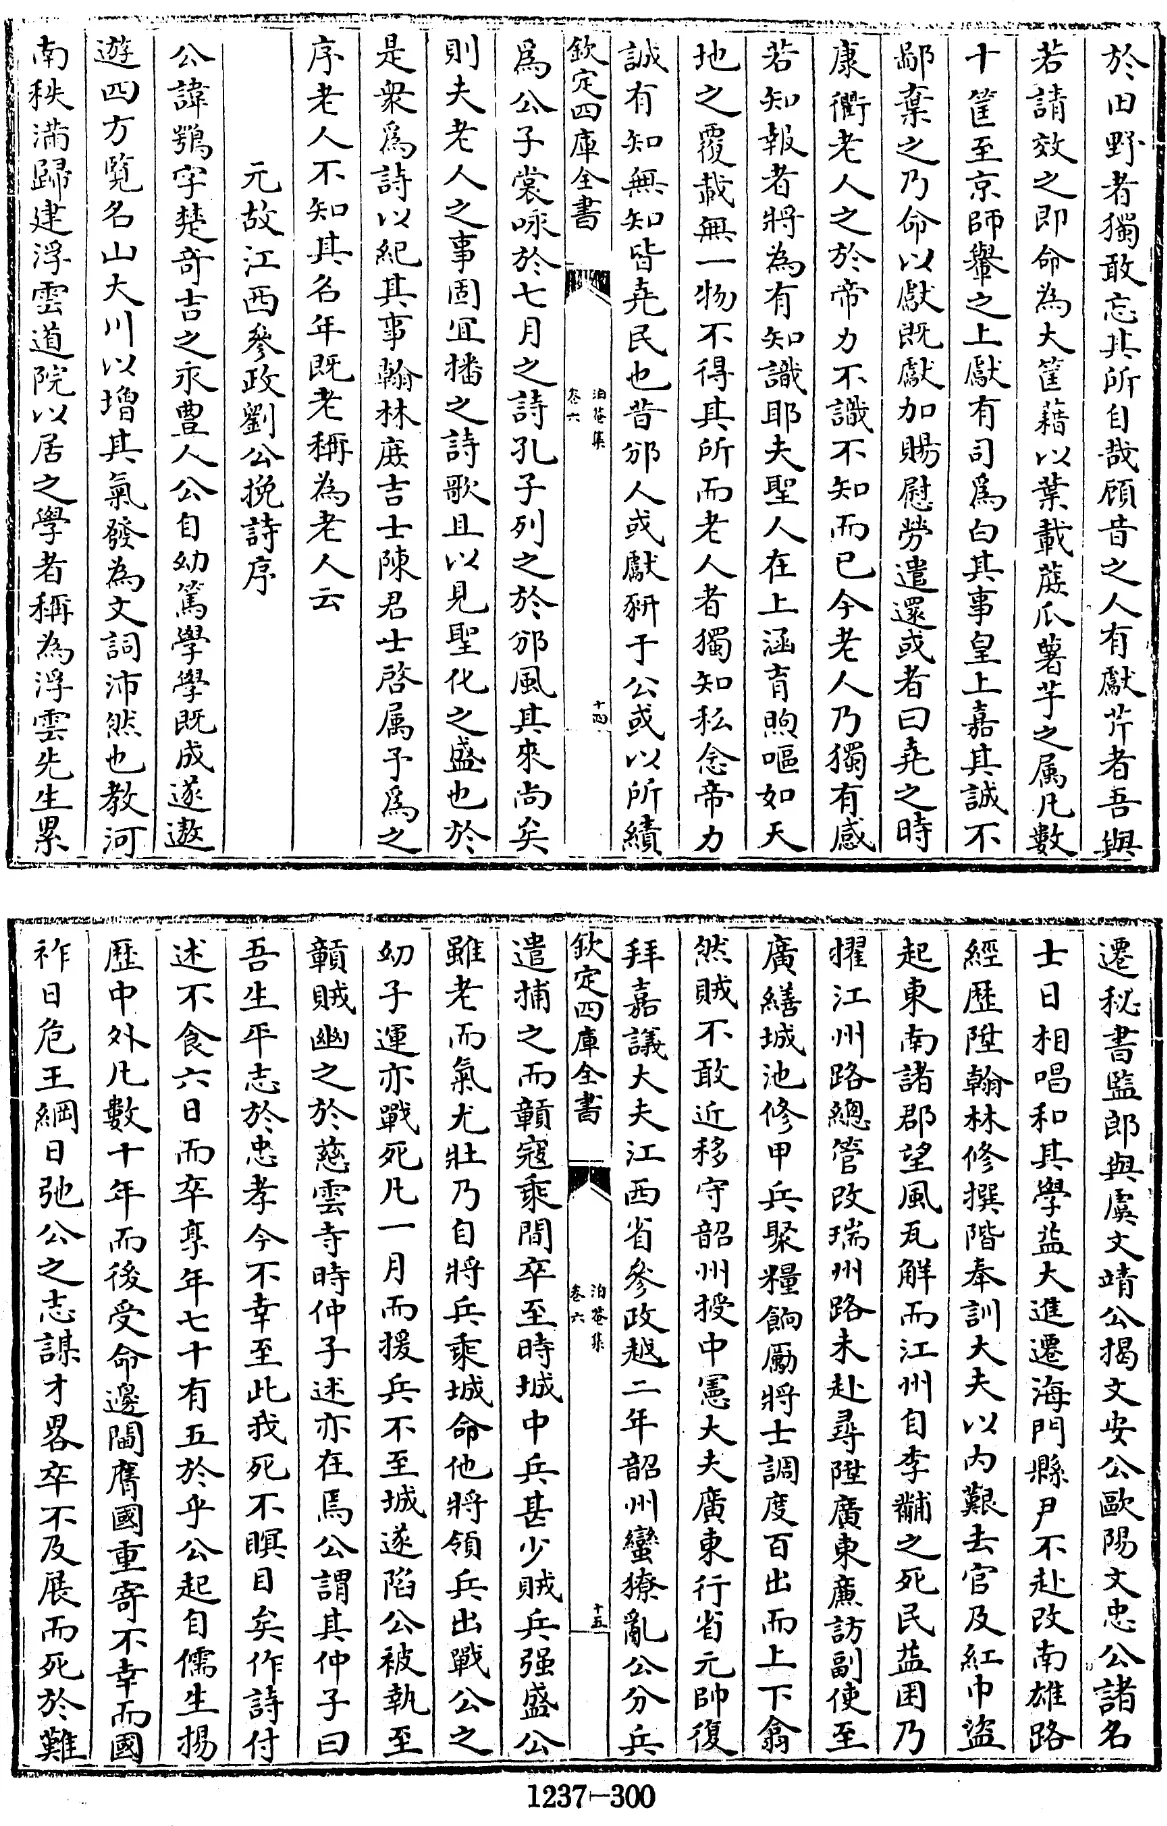 於田野者獨敢忘其所自哉顧昔之人有獻芹者吾與
若請效之即命為大筐藉以葉載蔬瓜薯芋之属凡數
十筐至京師轝之上獻有司為白其事皇上嘉其誠不
鄙棄之乃命以獻既獻加賜慰勞遣還或者曰堯之時
康衢老人之於帝力不識不知而已今老人乃獨有感
若知報者將為有知識耶夫聖人在上涵育煦嘔如天
地之覆載無一物不得其所而老人者獨知私念帝力
誠有知無知皆堯民也昔邠人或獻豜于公或以所績
欽定四庫全書
泊菴集
卷六
十四
為公子裳咏於七月之詩孔子列之於邠風其來尚矣
則夫老人之事固宜播之詩歌且以見聖化之盛也於
是衆為詩以紀其事翰林庶吉士陳君士啓属予為之
序老人不知其名年既老稱為老人云
元故江西參政劉公挽詩序
公諱鶚字楚奇吉之永豊人公自幼篤學學既成遂遨
遊四方覽名山大川以增其氣發為文詞沛然也教河
南秩滿歸建浮雲道院以居之學者稱為浮雲先生累
遷秘書監郎與虞文靖公揭文安公歐陽文忠公諸名
士日相唱和其學益大進遷海門縣尹不赴改南雄路
經歷陞翰林修撰階奉訓大夫以內艱去官及紅巾盜
起東南諸郡望風瓦解而江州自李黼之死民益困乃
擢江州路總管改瑞州路未赴尋陞廣東廉訪副使至
廣繕城池修甲兵聚糧餉勵將士調度百出而上下翕
然賊不敢近移守韶州授中憲大夫廣東行省元帥復
拜嘉議大夫江西省參政越二年韶州蠻獠亂公分兵
欽定四庫全書
泊菴集
卷六
十五
遣捕之而贛寇乘間卒至時城中兵甚少賊兵强盛公
雖老而氣尤壯乃自將兵乘城命他將領兵出戰公之
幼子運亦戰死凡一月而援兵不至城遂陷公被執至
贛賊幽之於慈雲寺時仲子述亦在焉公謂其仲子曰
吾生平志於忠孝今不幸至此我死不瞑目矣作詩付
述不食六日而卒享年七十有五於乎公起自儒生揚
歷中外凡數十年而後受命邊閫膺國重寄不幸而國
祚日危王綱日弛公之志謀才畧卒不及展而死於難
1237-300